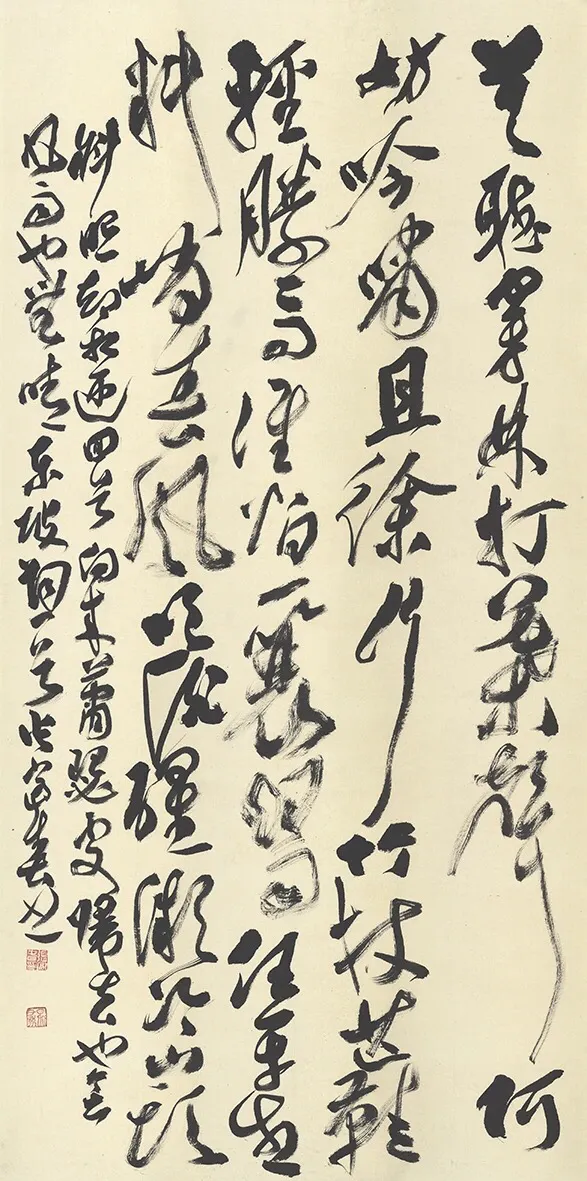 莫聽穿林打葉聲何
妨吟嘯且徐行竹杖芒鞋
輕勝馬誰怕一蓑煙雨任平生
料峭春風吹酒醒微冷山頭
斜照却相迎回首向來蕭瑟處歸去也無
風雨也無晴東坡詞一首